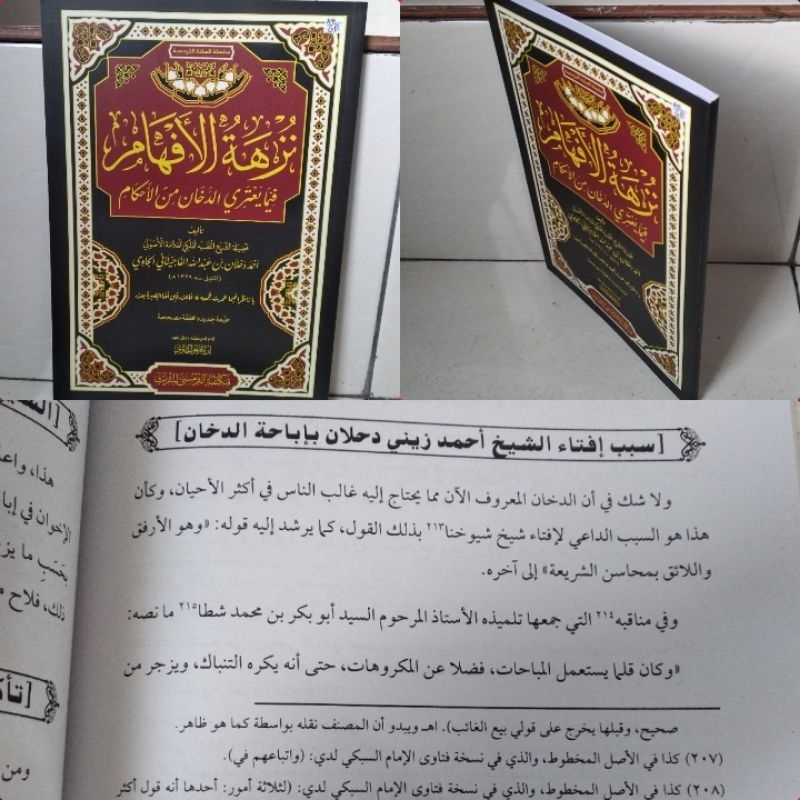 سلسلة الجادة الترمسية
نزهة الأفهام
فيما يعتري الدخان من الأحكام
تأليف
أحمد دحلان بن عبد الله الفاجيتاني الجاوي
طبعة جديدة محققة مصححة
مكتبة الترمسي للتراث
نزهة الأفهام
فيما يعتري الدخان من الأحكام
[سبب إفتاء الشيخ أحمد زيني دحلان بإباحة الدخان]
ولا شك في أن الدخان المعروف الآن مما يحتاج إليه غالب الناس في أكثر الأحيان، وكأن
هذا هو السبب الداعي لإفتاء شيخ شيوخنا٢١٣ بذلك القول، كما يرشد إليه قوله: «وهو الأرفق
واللائق بمحاسن الشريعة» إلى آخره.
وفي مناقبه٢١٤ التي جمعها تلميذه الأستاذ المرحوم السيد أبو بكر بن محمد شطا٢١٥ ما نصه:
«وكان قلما يستعمل المباحات، فضلا عن المكروهات، حتى أنه يكره التنباك، ويزجر من
صحيح، وقبلها يخرج على قولي بيع الغائب). اهـ ويبدو أن المصنف نقله بواسطة كما هو ظاهر.
(٢٠٧) كذا في الأصل المخطوط، والذي في نسخة فتاوى الإمام السبكي لدي: (واتباعهم في).
(٢٠٨) كذا في الأصل المخطوط، والذي في نسخة فتاوى الإمام السبكي لدي: (لثلاثة أمور: أحدها أنه قول أكثر
هذا، واعـ
الإخوان في إبا
بحسب ما يز
ذلك، فلاح م
[تأك
ومن